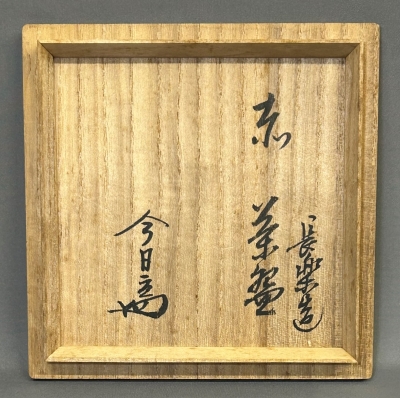 長楽造
赤 茶盌
今日庵